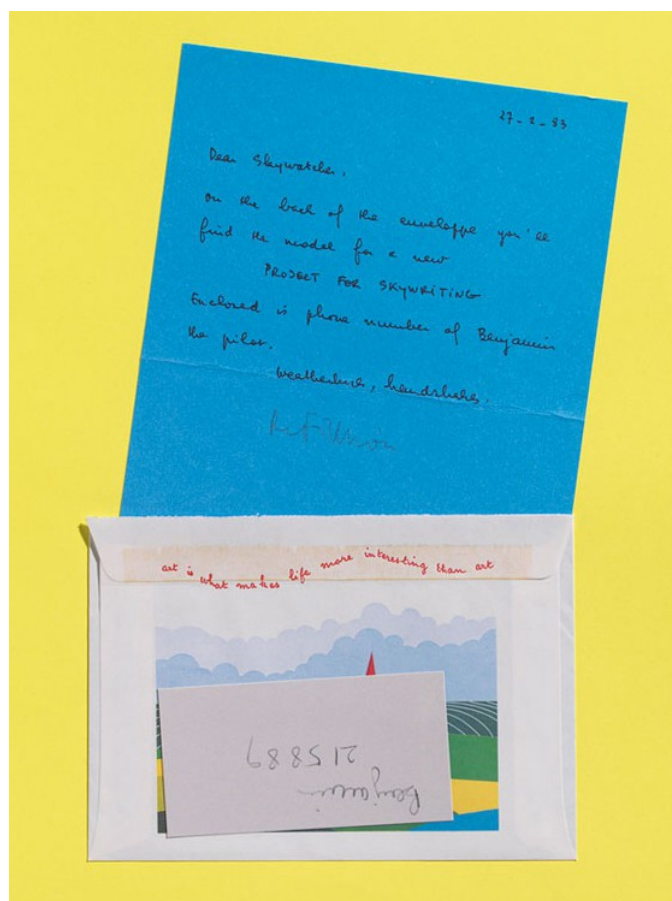 27-2-83
Dear Skywatcher,
on the back of the enveloppe you'll
find the model for a new
PROJECT FOR SKYWRITING
Enclosed is phone number of Benjamin
the pilot.
Weatherluck, handshakes,
art is what makes life more interesting than art
Benjamin
215889